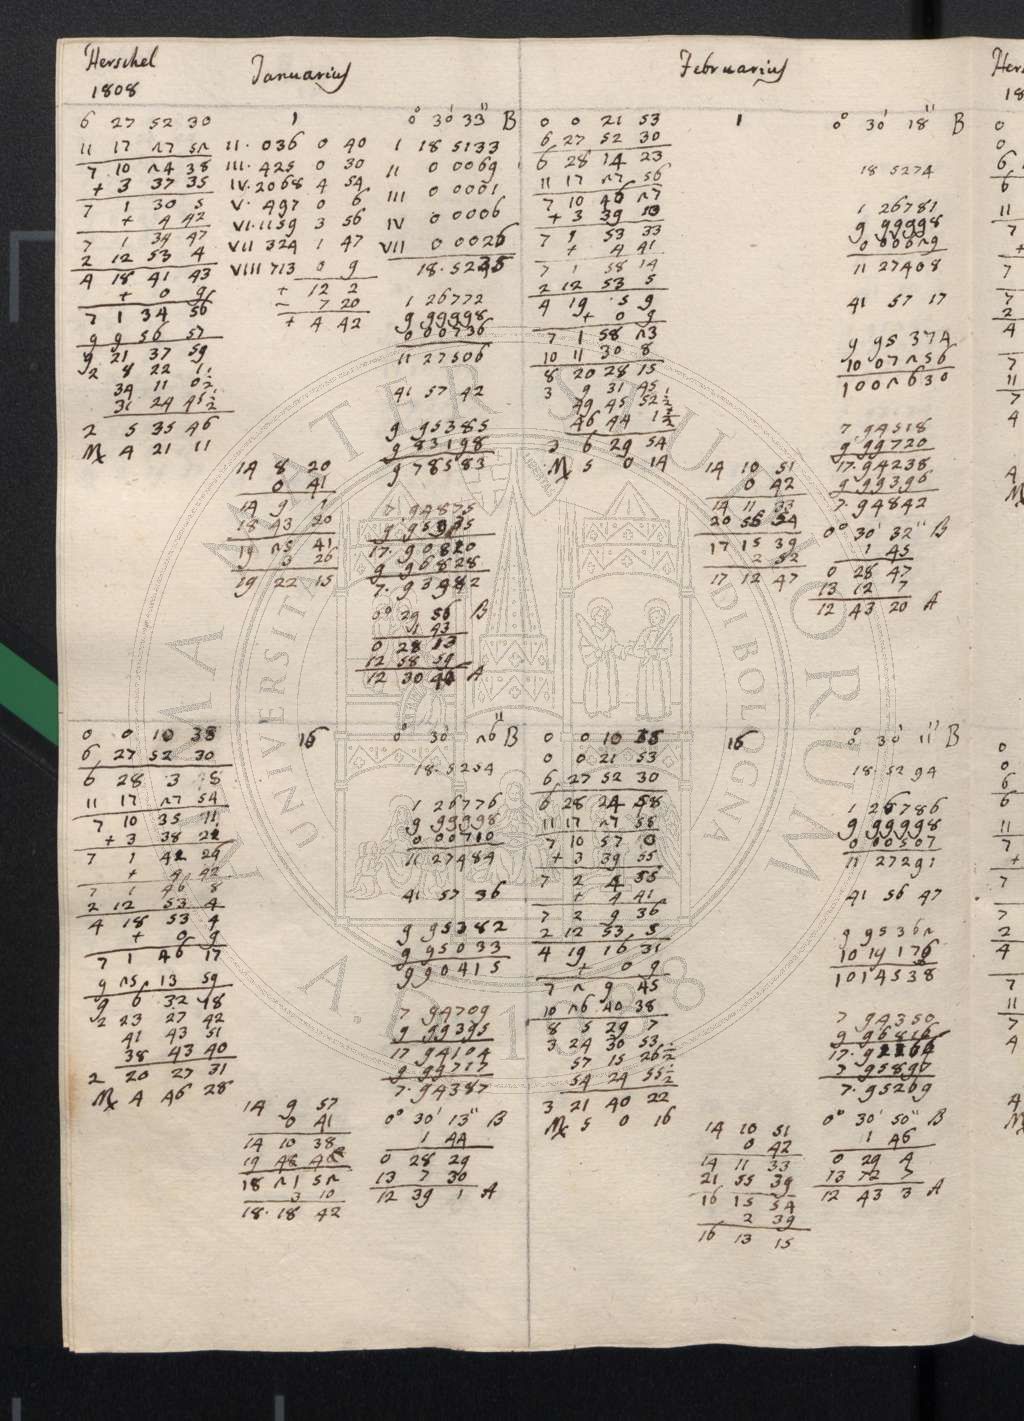 Herschel
1808
Januarius
6 27 52 30
11 17 27 52
7 10 24 38
+ 3 37 35
7 1 30 5
+ 4 42
7 1 34 47
2 12 53 4
4 18 41 43
+ 0 9
7 1 34 56
9 9 56 57
9 21 37 59
2 8 22 1
34 11 0½
31 24 45½
2 5 35 46
♏ 4 21 11
1
II. 036 0 40
III. 425 0 30
IV. 2068 4 54
V. 497 0 6
VI. 1159 3 56
VII 324 1 47
VIII 713 0 9
+ 12 2
− 7 20
+ 4 42
14 8 20
0 41
14 9 1
18 43 20
19 25 41
3 26
19 22 15
0° 30' 33" B
I 18 5133
II 0 0069
III 0 0001
IV 0 0006
VII 0 0026
18. 5235
1 26772
9 99998
0 00736
11 27506
41 57 42
9 95385
9 83198
9 78583
7 94875
9 95935
17. 90820
9 96828
7. 93982
0° 29 56 B
1 43
0 28 13
12 58 59
12 30 46 A
Februarius
0 0 21 53
6 27 52 30
6 28 14 23
11 17 27 56
7 10 46 27
+ 3 39 10
7 1 53 33
+ 4 41
7 1 58 14
2 12 53 5
4 19 5 9
+ 0 9
7 1 58 23
10 11 30 8
8 20 28 15
3 9 31 45
49 45 52½
46 44 1½
3 6 29 54
♏ 5 0 14
1
14 10 51
0 42
14 11 33
20 56 54
17 15 39
2 52
17 12 47
0° 30' 18" B
18 5274
1 26781
9 99998
0 00629
11 27408
41 57 17
9 95 374
10 07 256
10 02630
7 94518
9 99720
17. 94238
9 99396
7. 94842
0° 30' 32" B
1 45
0 28 47
13 12 7
12 43 20 A
0 0 10 38
6 27 52 30
6 28 3 8
11 17 27 54
7 10 35 11
+ 3 38 22
7 1 42 29
+ 4 42
7 1 46 8
2 12 53 4
4 18 53 4
+ 0 9
7 1 46 17
9 25 13 59
9 6 32 18
2 23 27 42
41 43 51
38 43 40
2 20 27 31
♏ 4 46 28
16
14 9 57
0 41
14 10 38
19 48 46
18 21 52
3 10
18. 18 42
0° 30' 26" B
18. 5254
1 26776
9 99998
0 00710
11 27484
41 57 36
9 95382
9 95033
9 90415
7 94709
9 99395
17 94104
9 99717
7. 94387
0° 30' 13" B
1 44
0 28 29
13 7 30
12 39 1 A
0 0 10 35
0 0 21 53
6 27 52 30
6 28 24 58
11 17 27 58
7 10 57 0
+ 3 39 55
7 2 4 55
+ 4 41
7 2 9 36
2 12 53 5
4 19 16 31
+ 0 9
7 2 9 45
10 26 40 38
8 5 29 7
3 24 30 53
57 15 26½
54 24 55½
3 21 40 22
♏ 5 0 16
16
14 10 51
0 42
14 11 33
21 55 39
16 15 54
2 39
16 13 15
0° 30' 11" B
18. 5294
1 26786
9 99998
0 00507
11 27291
41 56 47
9 95362
10 19 176
10 14538
7 94350
9 96816
17. 91166
7 95897
7. 95269
0° 30' 50" B
1 46
0 29 4
13 12 7
12 43 3 A